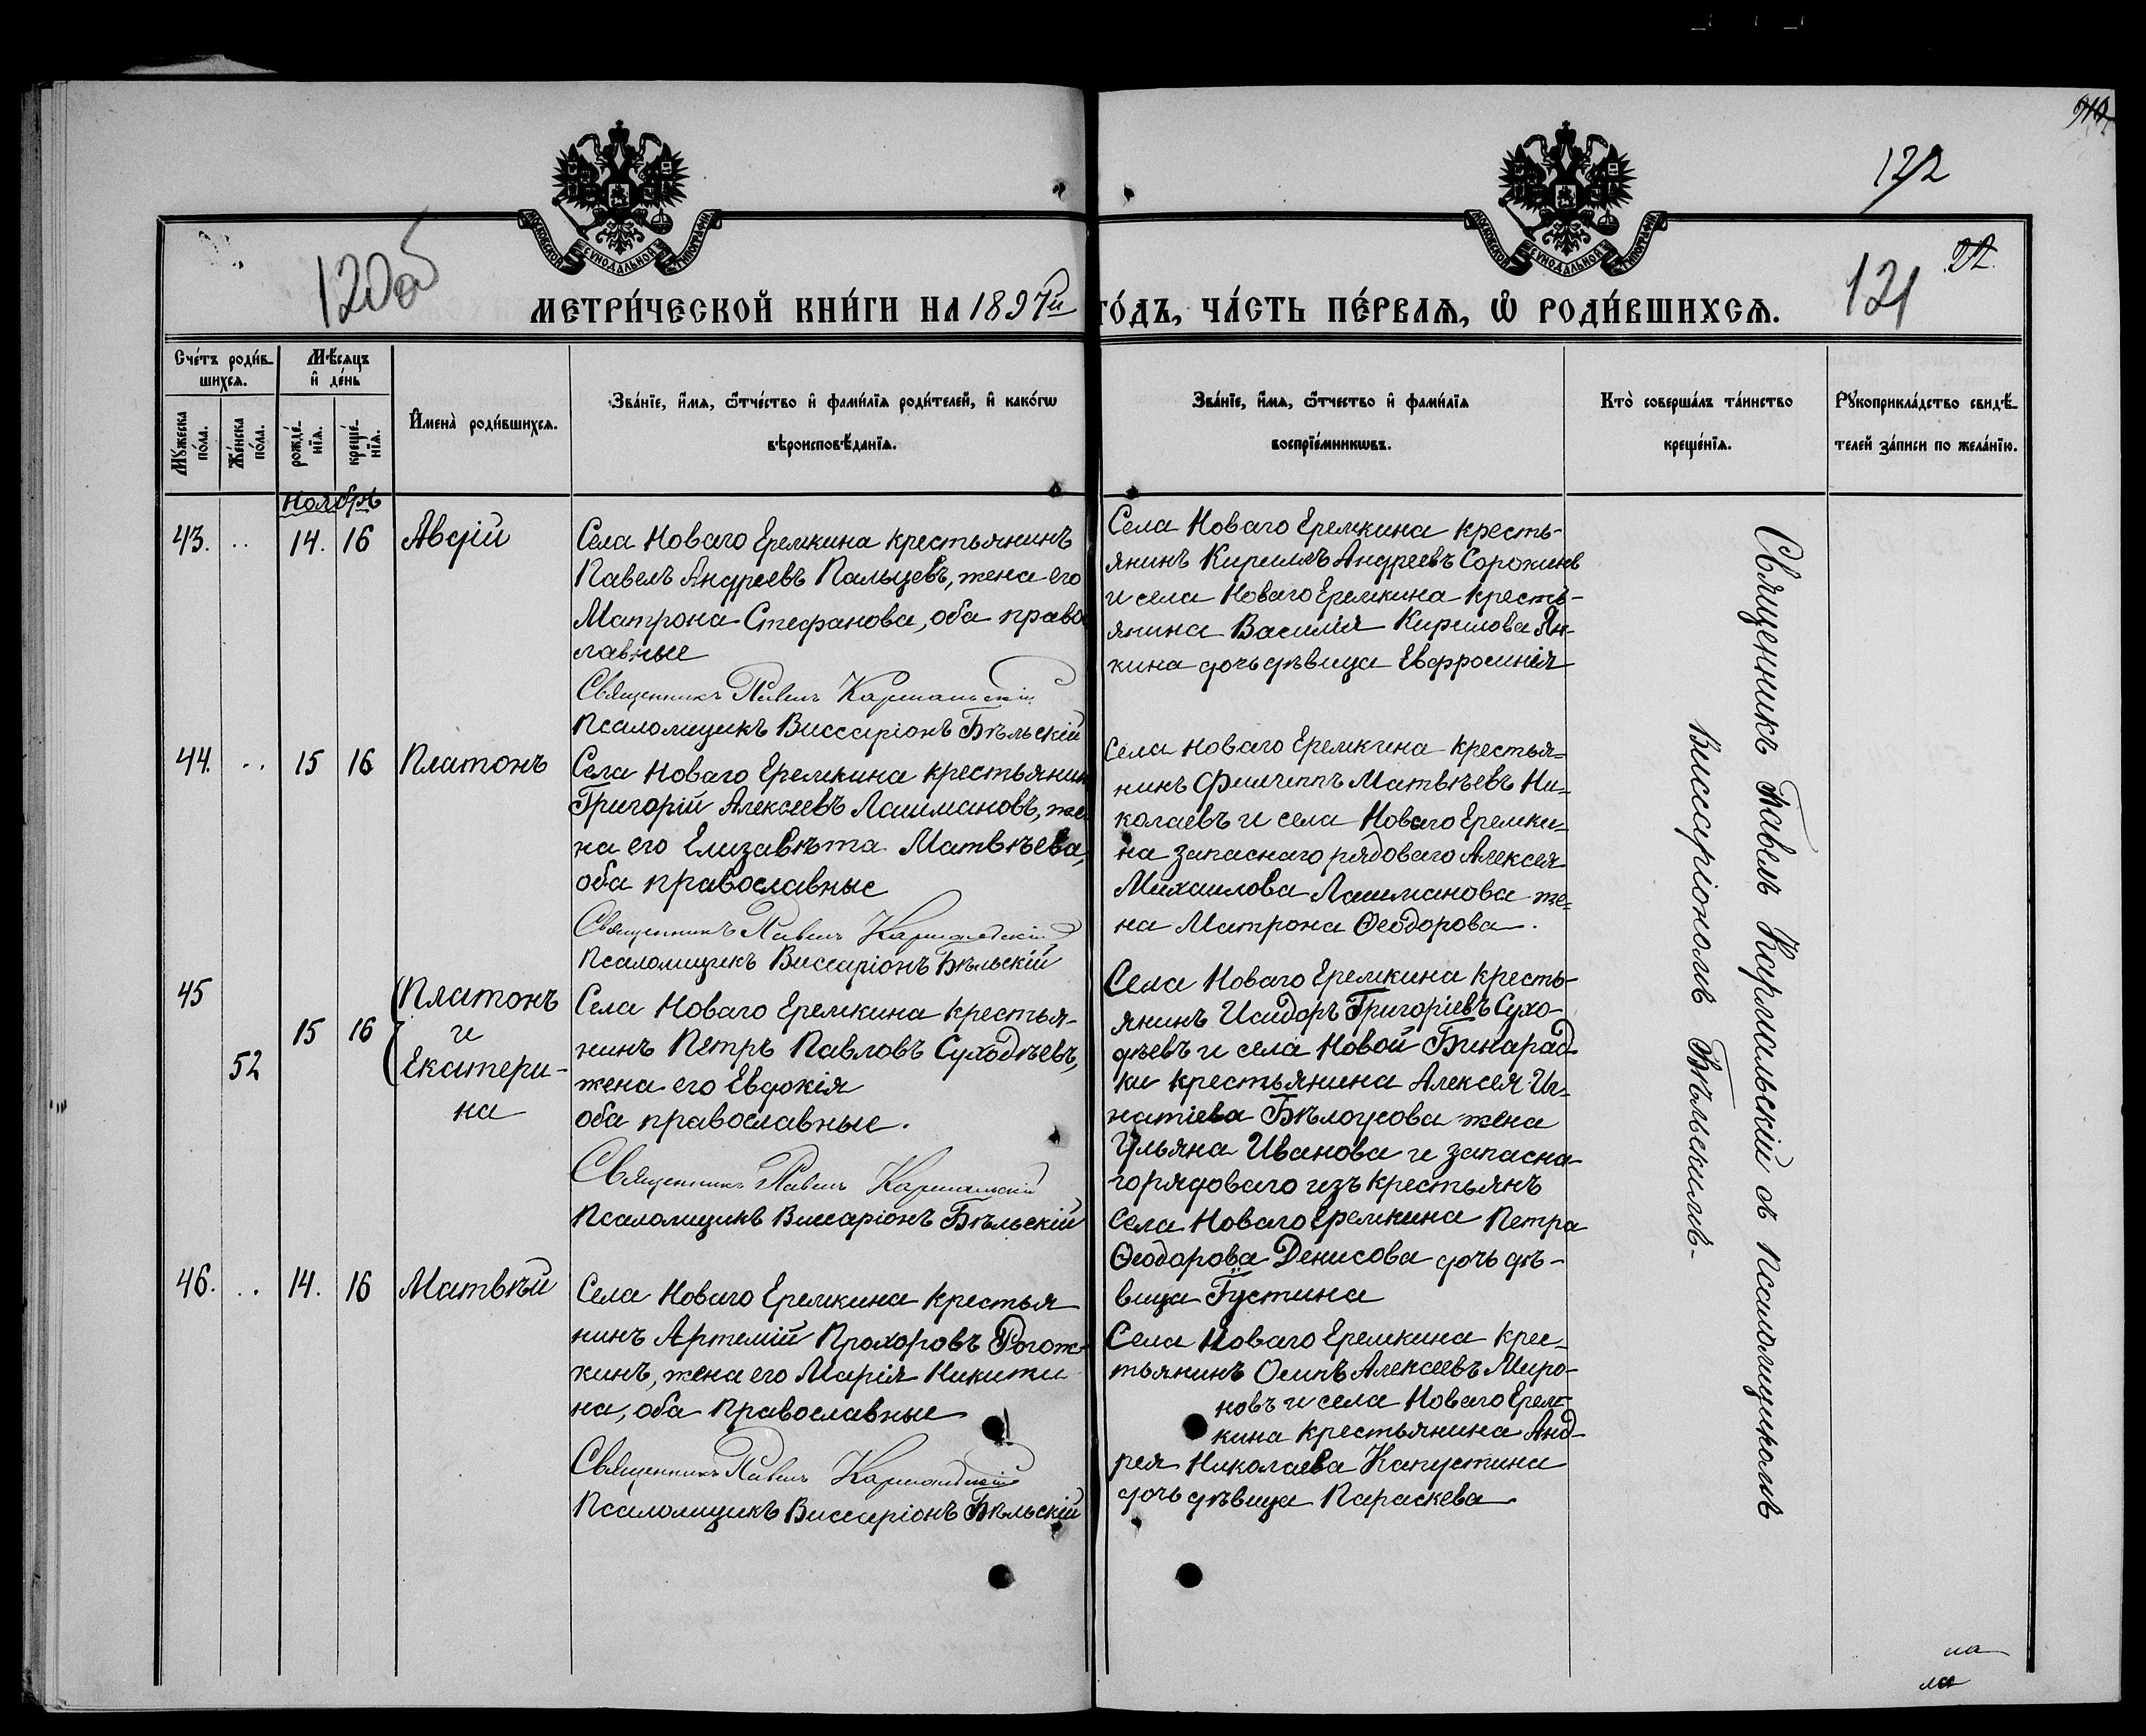 122
120об
121
22.
МОСКОВСКОЙ СУНОДАЛЬНОЙ ТИПОГРАФІИ
МОСКОВСКОЙ СУНОДАЛЬНОЙ ТИПОГРАФІИ
МЕТРИ́ЧЕСКОЙ КНИ́ГИ НА 1897й ГО́ДЪ, ЧА́СТЬ ПЕ́РВАѦ, Ѡ РОДИ́ВШИХСѦ.
Сче́тъ роди́в-
шихсѧ.
Мꙋ́жеска
по́ла.
Же́нска
по́ла.
Мѣ́сѧцъ
и҆ де́нь
рожде́-
нїѧ.
креще́-
нїѧ.
И҆мена̀ роди́вшихсѧ.
Зва́нїе, и҆́мѧ, ѻ҆́тчество и҆ фами́лїѧ роди́телей, и҆ како́гѡ
вѣроисповѣ́данїѧ.
Зва́нїе, и҆́мѧ, ѻ҆́тчество и҆ фами́лїѧ
воспрїе́мникѡвъ.
Кто̀ соверша́лъ та́инство
креще́нїѧ.
Рꙋкоприкла́дство свидѣ́-
телей за́писи по жела́нїю.
Ноябрь
43. .. 14. 16 Авдій
Села Новаго Еремкина крестьянинъ
Павелъ Андреевъ Пальцевъ, жена его
Матрона Стефанова, оба право
лавные
Священникъ Павелъ Кармальскій
Псаломщикъ Виссаріонъ Бѣльскій
Села Новаго Еремкина кресть-
янинъ Кириллъ Андреевъ Сорокинъ
и села Новаго Еремкина кресть-
янина Василія Кирилова Ян-
кина дочь дѣвица Евфросинія
44. .. 15 16 Платонъ
Села Новаго Еремкина крестьянин
Григорій Алексеевъ Лашмановъ, же
на его Елизавѣта Матвѣева,
оба православные
Священникъ Павелъ Кармальскій
Псаломщикъ Виссаріонъ Бѣльскій
Села Новаго Еремкина крестья=
нинъ Филиппъ Матвѣевъ Ни=
колаевъ и села Новаго Еремки=
на запаснаго рядоваго Алексея
Михаилова Лашманова же=
на Матрона Ѳеодорова.
45 52 15 16
Платонъ
и
Екатери-
на
Села Новаго Еремкина крестья-
нинъ Петръ Павловъ Суходѣевъ,
жена его Евдокія
оба православные.
Священникъ Павелъ Кармальскій
Псаломщикъ Виссаріонъ Бѣльскій
Села Новаго Еремкина кресть-
янинъ Исидоръ Григоріевъ Сухо-
дѣевъ и села Новой Бинарад-
ки крестьянина Алексея Иг-
натіева Бѣлоусова жена
Ульяна Иванова и запасна-
го рядоваго изъ крестьянъ
Села Новаго Еремкина Петра
Ѳеодорова Денисова дочь дѣ-
вица Густина
46. .. 14. 16 Матвѣй
Села Новаго Еремкина крестья
нинъ Артемій Прохоровъ Рогож-
кинъ, жена его Марія Никити
на, оба православные
Священникъ Павелъ Кармальскій
Псаломщикъ Виссаріонъ Бѣльскій
Села Новаго Еремкина крес-
тьянинъ Осипъ Алексеевъ Миро-
новъ и села Новаго Ерем-
кина крестьянина Анд-
рея Николаева Капустина
дочь дѣвица Параскева
Священникъ Павелъ Кармальскій съ псаломщикомъ
Виссаріономъ Бѣльскимъ-